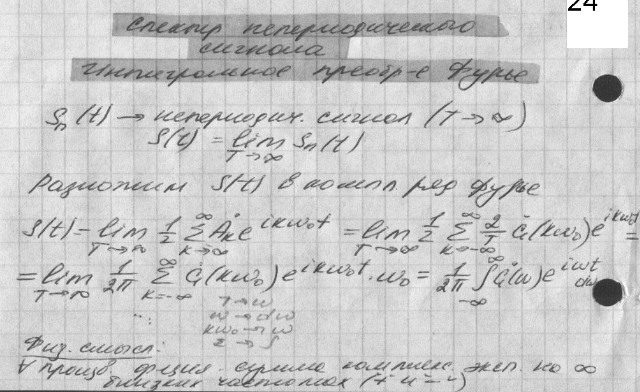 24
Спектр непериодического
сигнала
Интегральное преобр-е Фурье
Sп(t) → непериодич. сигнал (T→∞)
S(t) = lim T→∞ Sп(t)
Разложим S(t) в компл ряд Фурье
S(t) = lim T→∞ 1/2 ∑ k→∞ ∞ Ȧк e^ikω₀t = lim T→∞ 1/2 ∑ k=-∞ ∞ 2/T Ġ(kω₀) e^ikω₀t =
= lim T→∞ 1/2π ∑ k=-∞ ∞ Ġ(kω₀) e^ikω₀t · ω₀ = 1/2π ∫ -∞ ∞ Ġ(ω) e^iωt dω
ω → dω
kω₀ → ω
Σ → ∫
Физ. смысл:
∀ произв. функция - сумма комплекс. эксп. на ∞
близких частотах (+ и -)